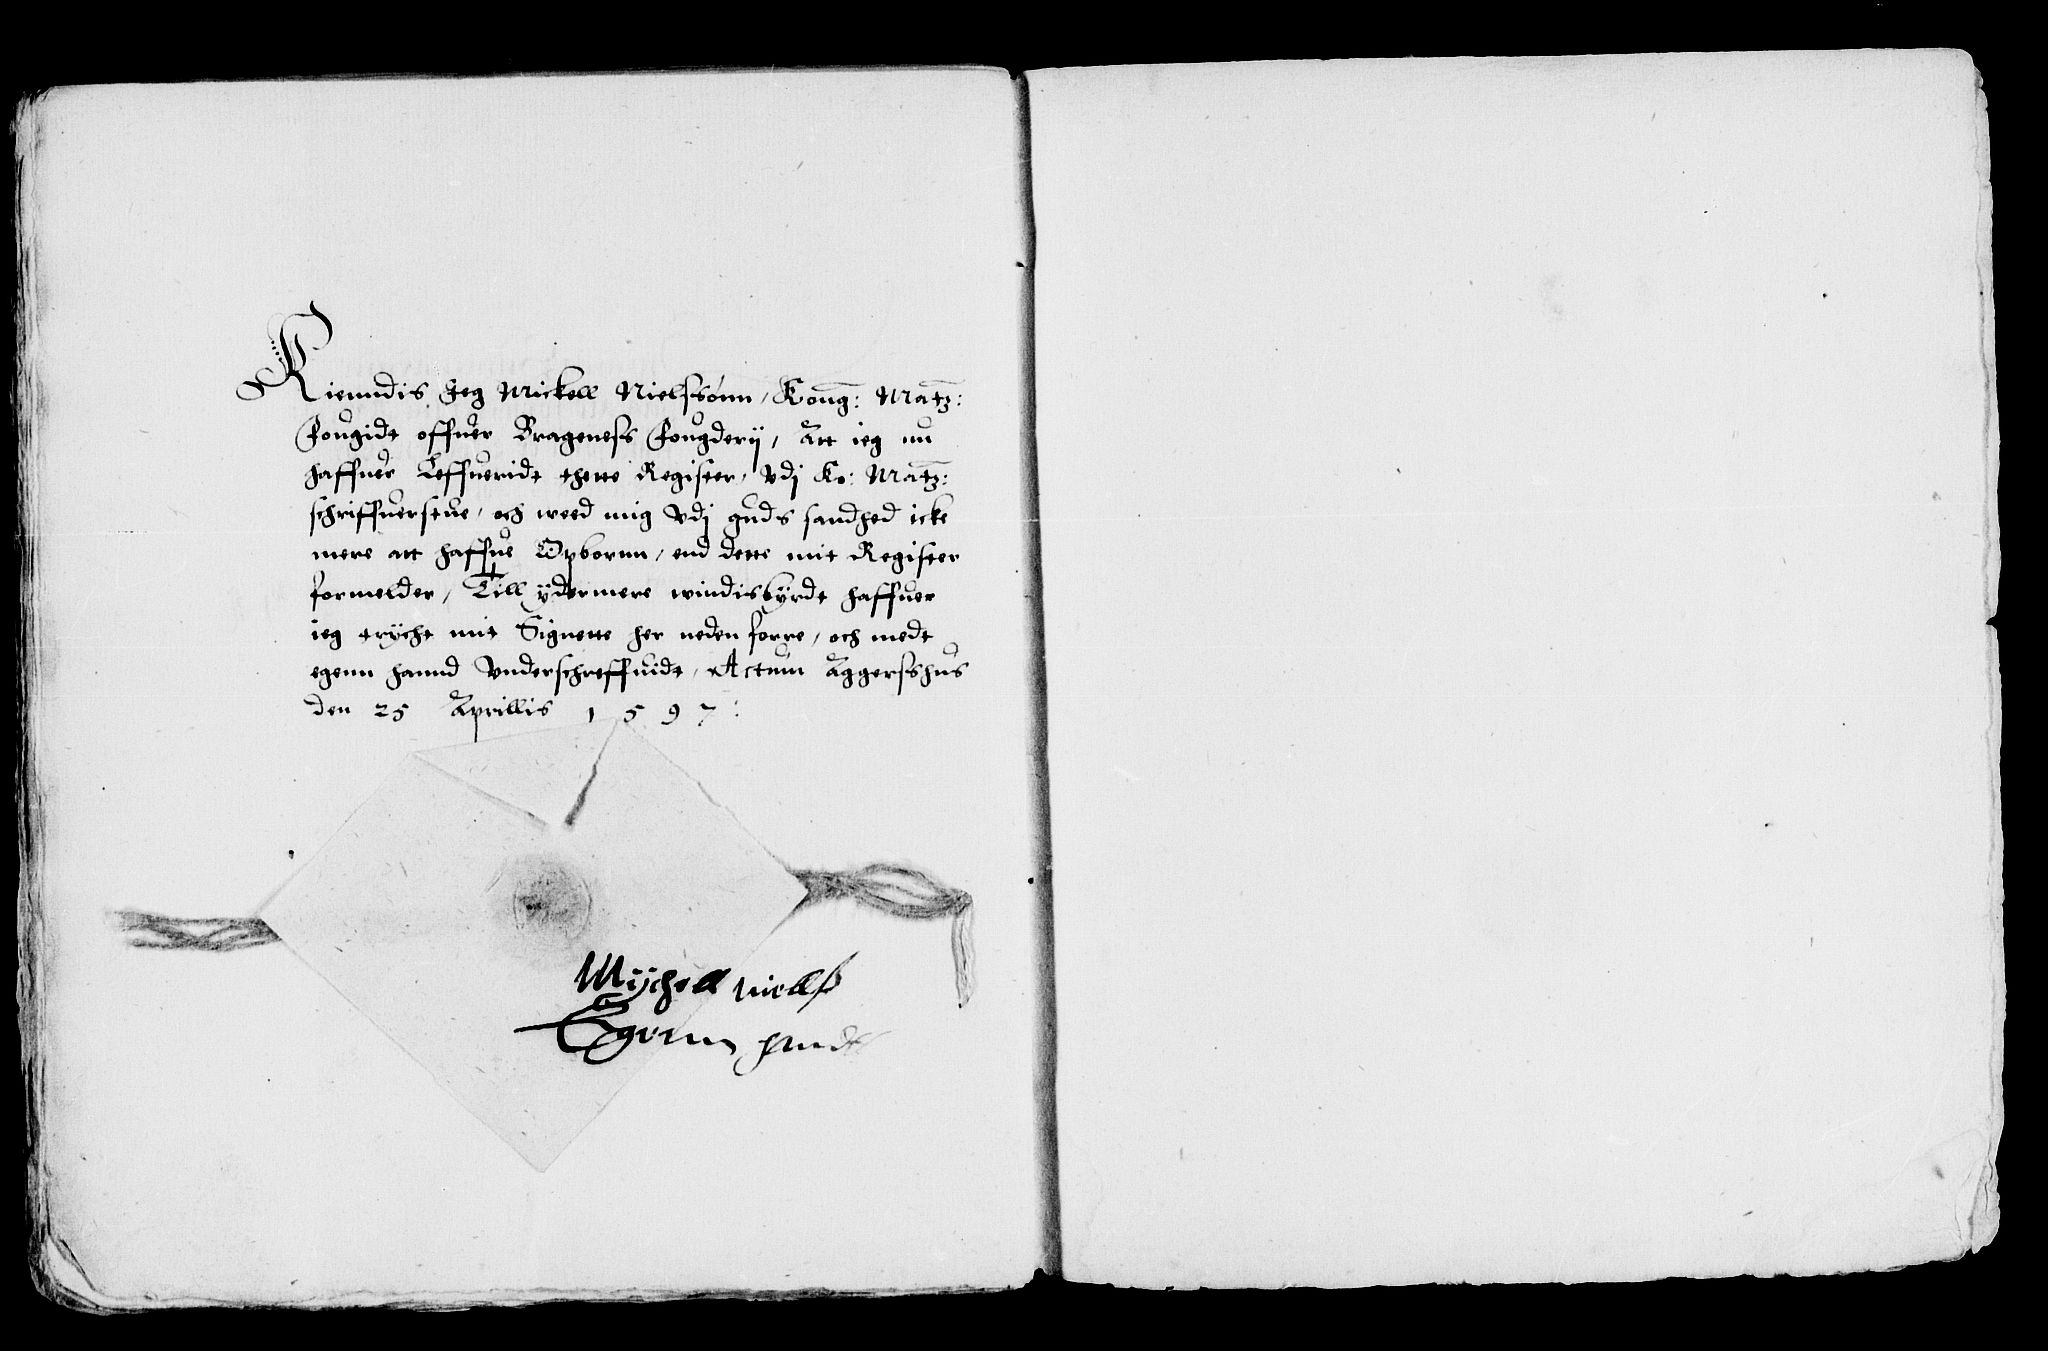 Kienndis Jeg Mickell Nielssønn, Kong: Matz:
Fougidt offuer Brageness Fougderij, Att ieg nu
haffuer Leffueridt thette Register, Vdj Ko: Matz:
schriffuerstue, och weed mig Vdj guds sandhed icke
mere att haffue Opbornn, end dette mit Register
formelder, Till ÿdermere windisbÿrdt haffuer
ieg trÿcht mit Signette her neden forre, och medt
egenn hannd Vnderschreffuidt, Actum Aggersshus
den 25 Aprillis 1597:
Mÿchell niellß
Egenn handt